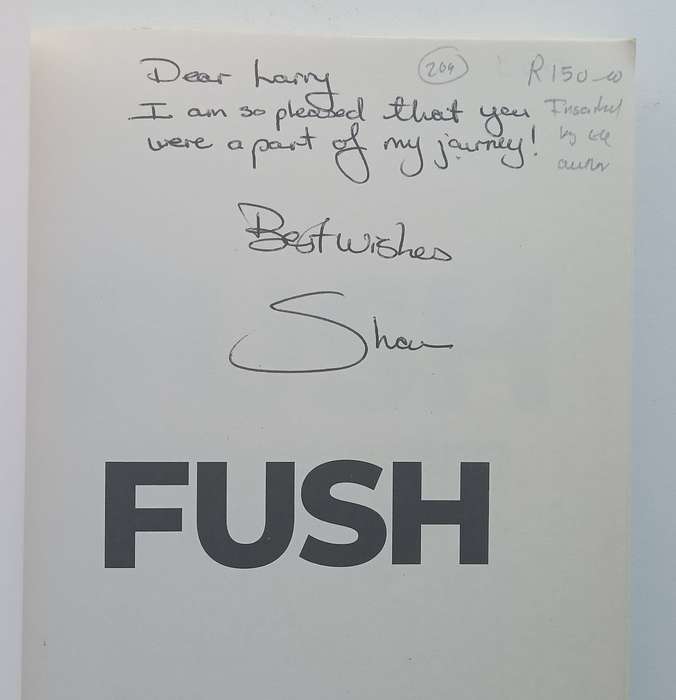 Dear Larry
I am so pleased that you
were a part of my journey!
Best wishes
Shau
209
R150-00
Inscribed
by the
author
FUSH